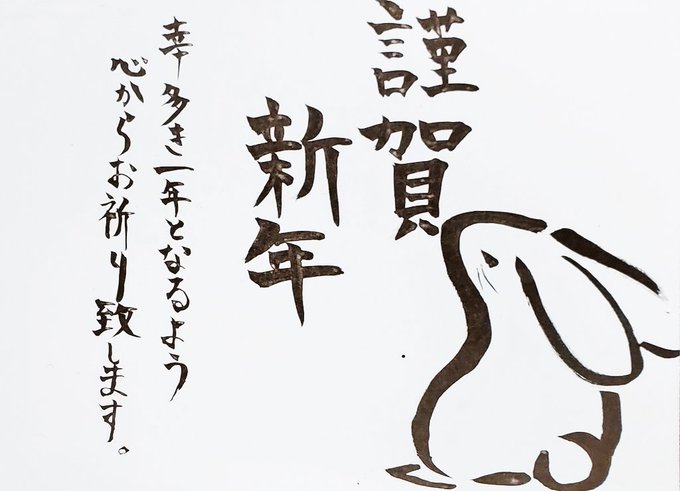 謹賀
新年
幸多き一年となるよう
心からお祈り致します。